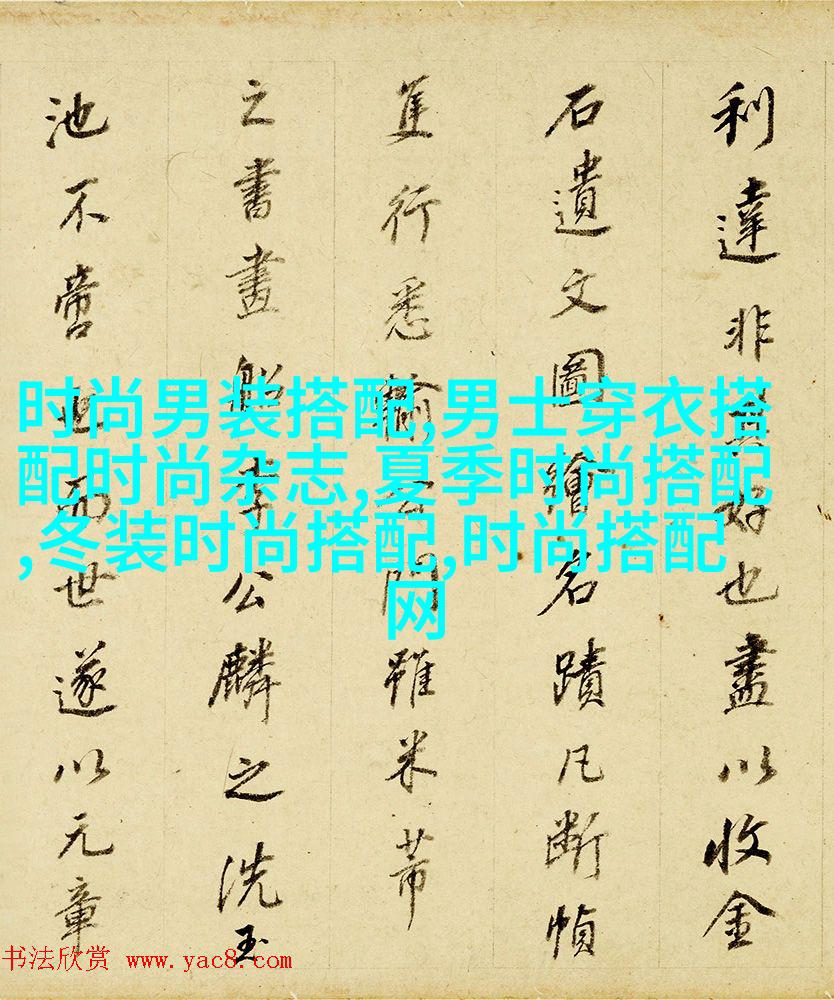 利達非其好也盡以收金
石遺文圖繪名蹟凡斷幀
隻行悉輸公門雖米芾
之書畫船李公麟之洗玉
池不啻也而世遂以元章
时尚男装搭配,男士穿衣搭
配时尚杂志,夏季时尚搭配
,冬装时尚搭配,时尚搭配
网
书法欣赏 www.yac8.com